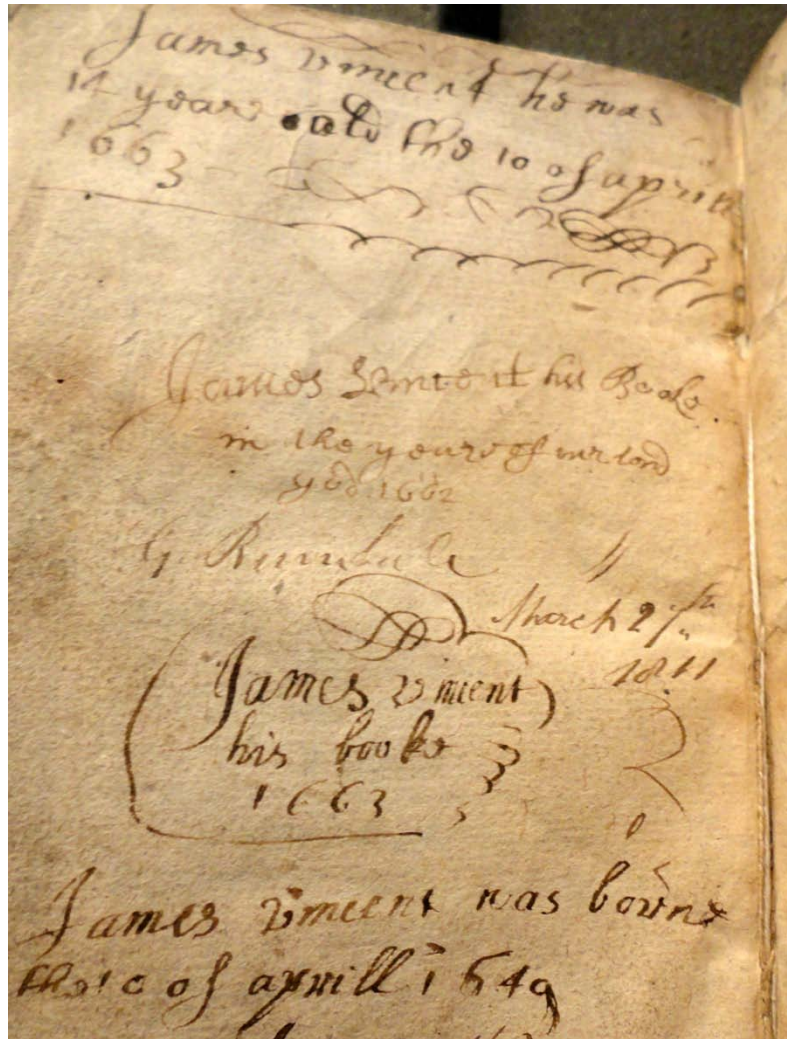 James vincent he was
14 yeare oald the 10 of aprill
1663
James Vincent his Booke
in the yeare of our lord
1662
G. Rumball
March 27th
1811
James vincent
his booke
1663
James vincent was borne
the 10 of aprill 1649